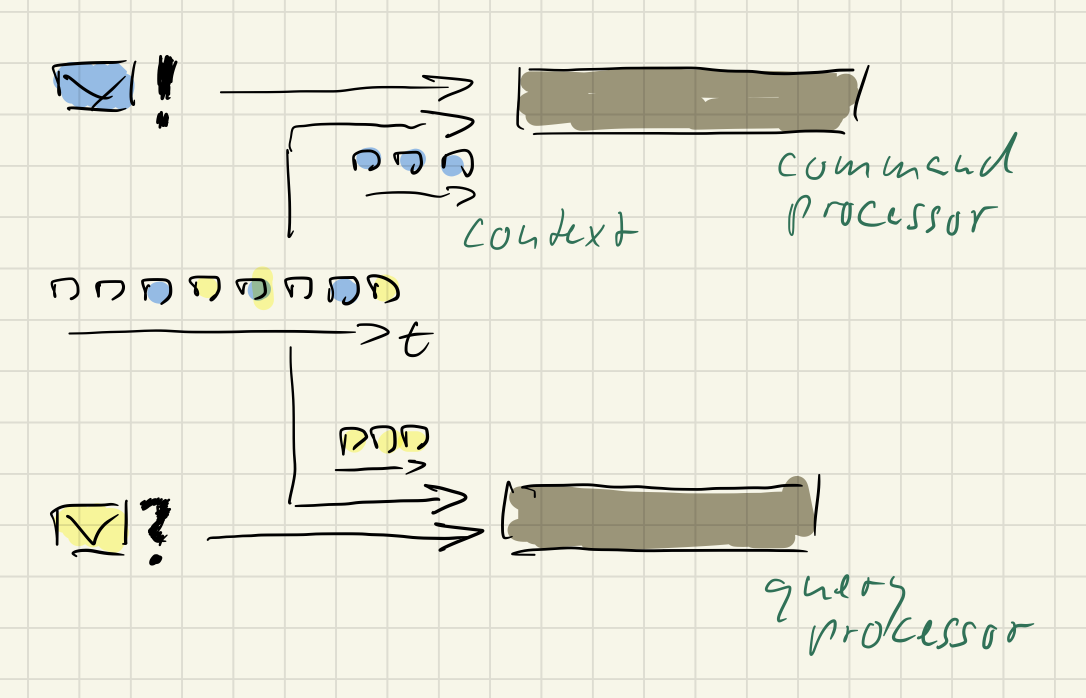 !
command
processor
context
t
?
query
processor